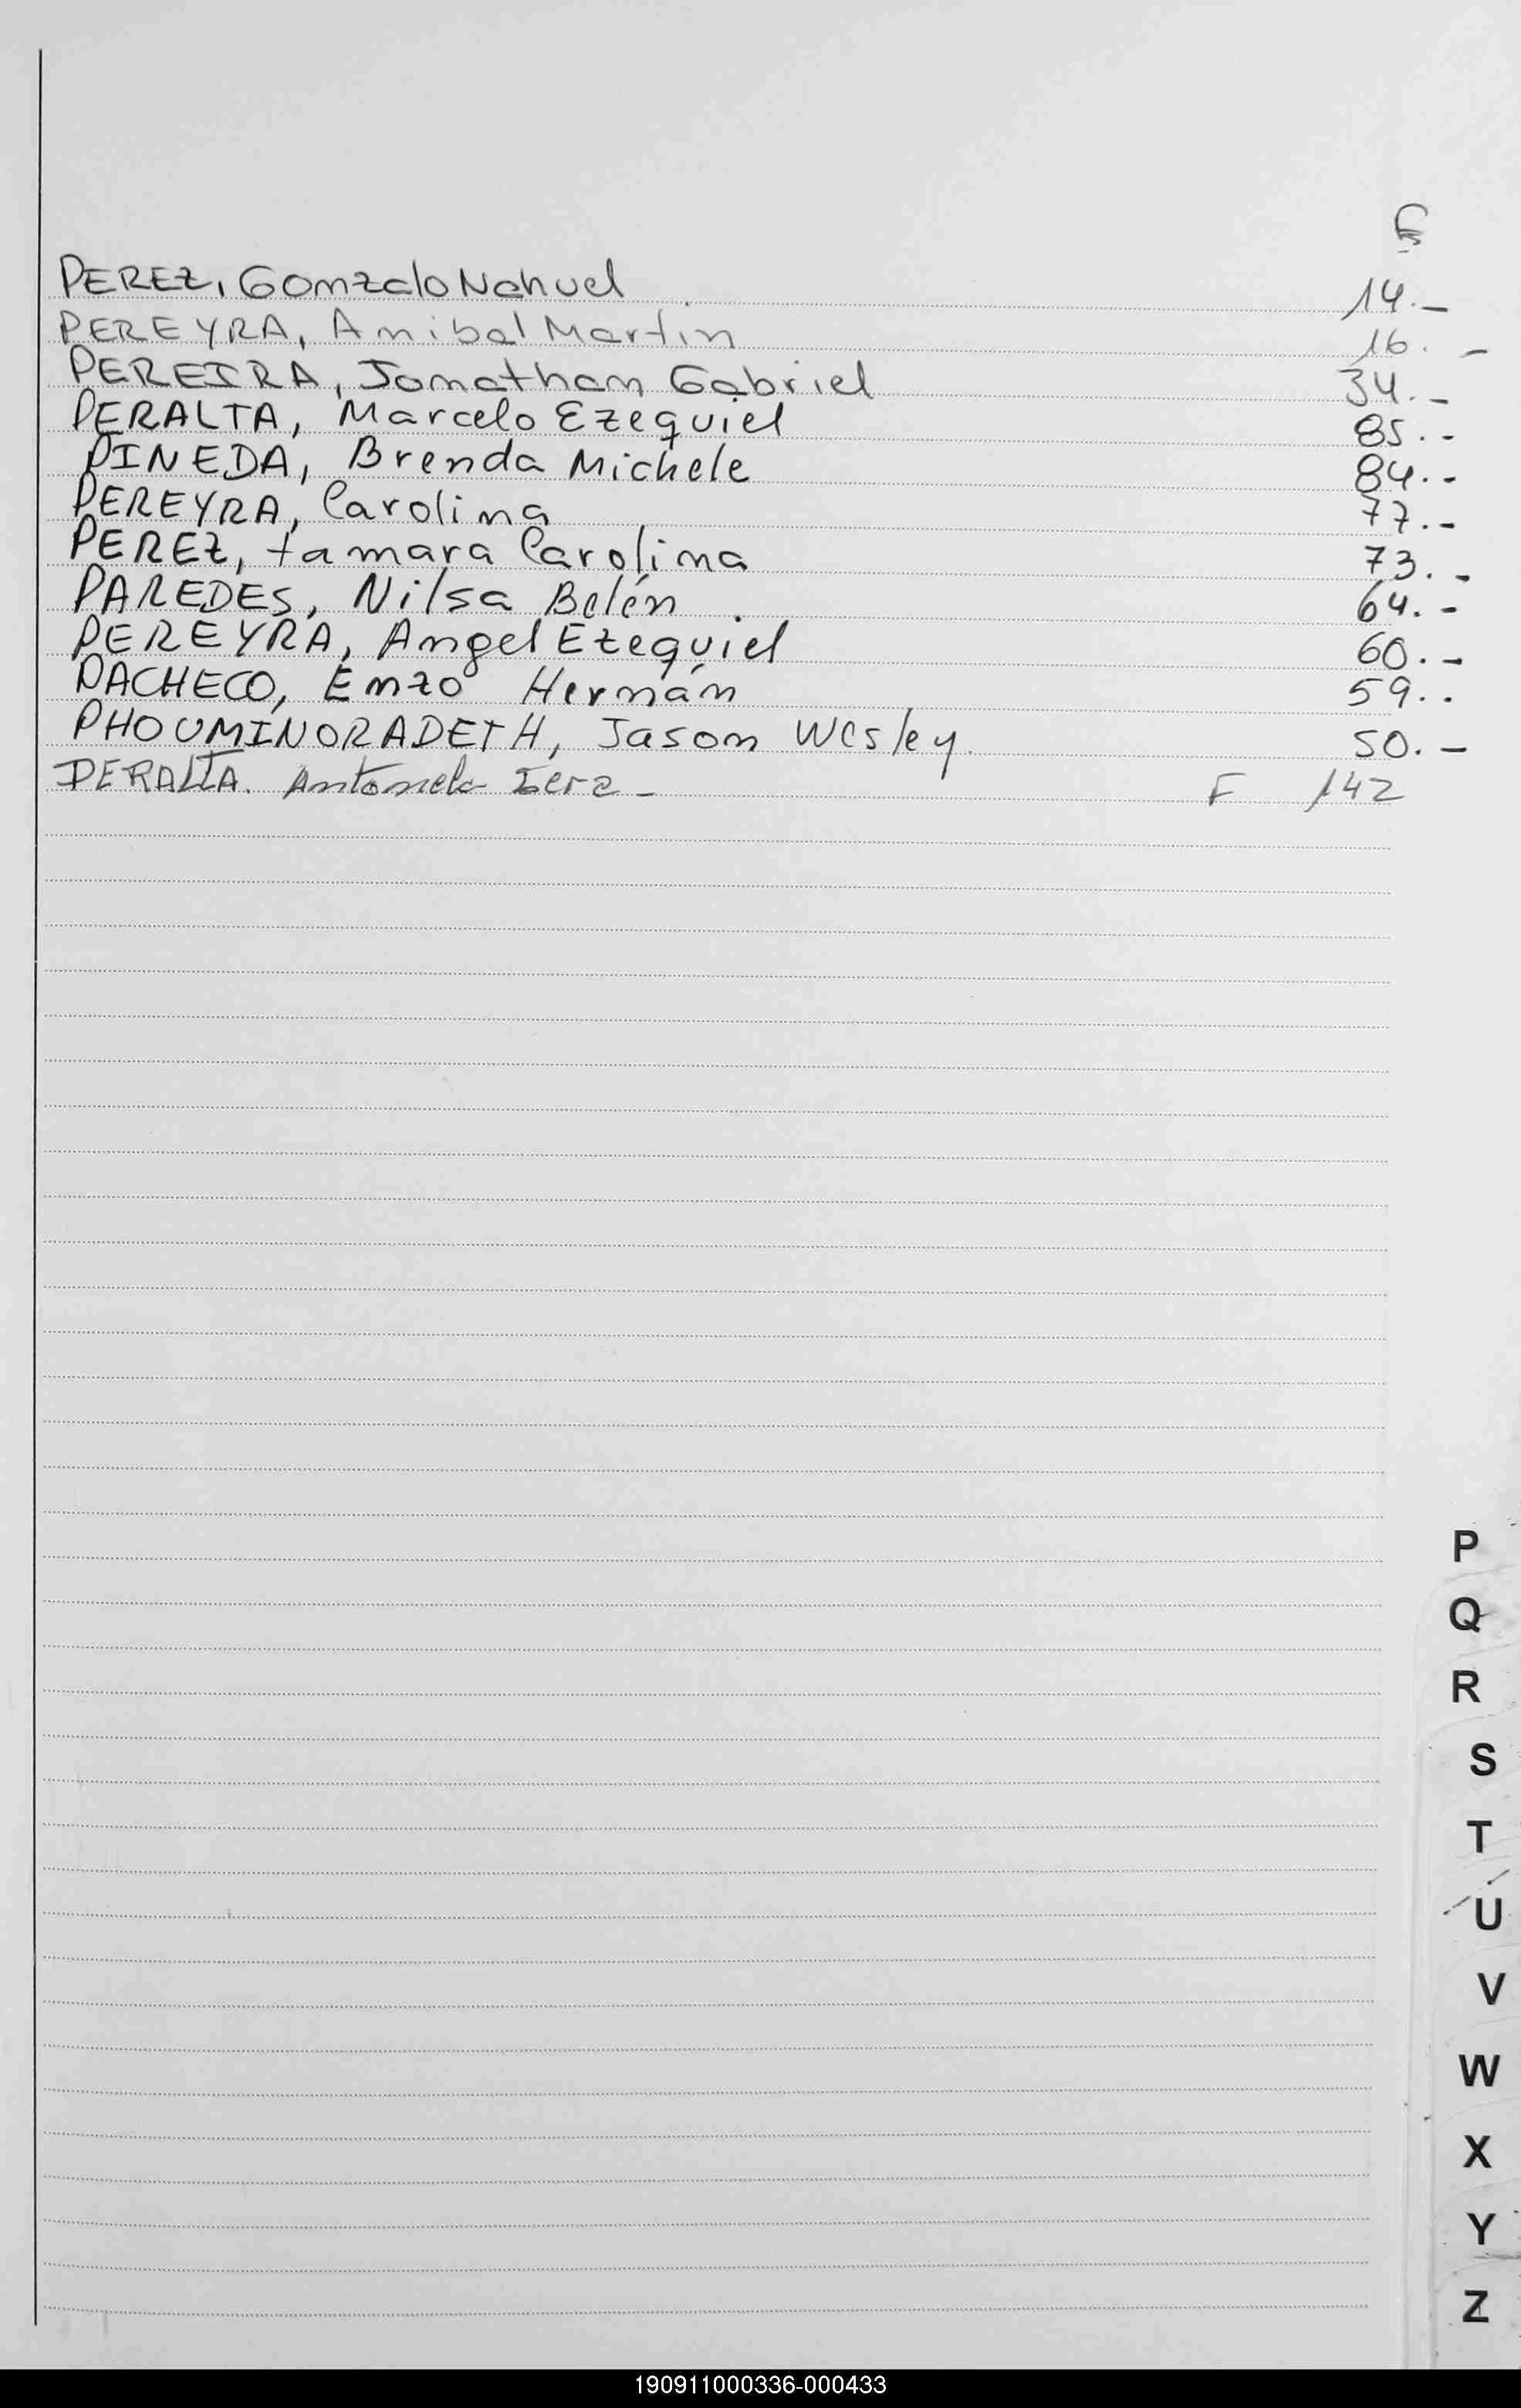 F
PEREZ, Gonzalo Nahuel 14.-
PEREYRA, Anibal Martin 16.-
PEREIRA, Jonathan Gabriel 34.-
PERALTA, Marcelo Ezequiel 85.-
PINEDA, Brenda Michele 84.-
PEREYRA, Carolina 77.-
PEREZ, tamara Carolina 73.-
PAREDES, Nilsa Belén 64.-
PEREYRA, Angel Ezequiel 60.-
PACHECO, Enzo Hernán 59..
PHOUMINORADETH, Jason Wesley. 50.-
PERALTA. Antonela - F 142
P
Q
R
S
T
U
V
W
X
Y
Z
190911000336-000433